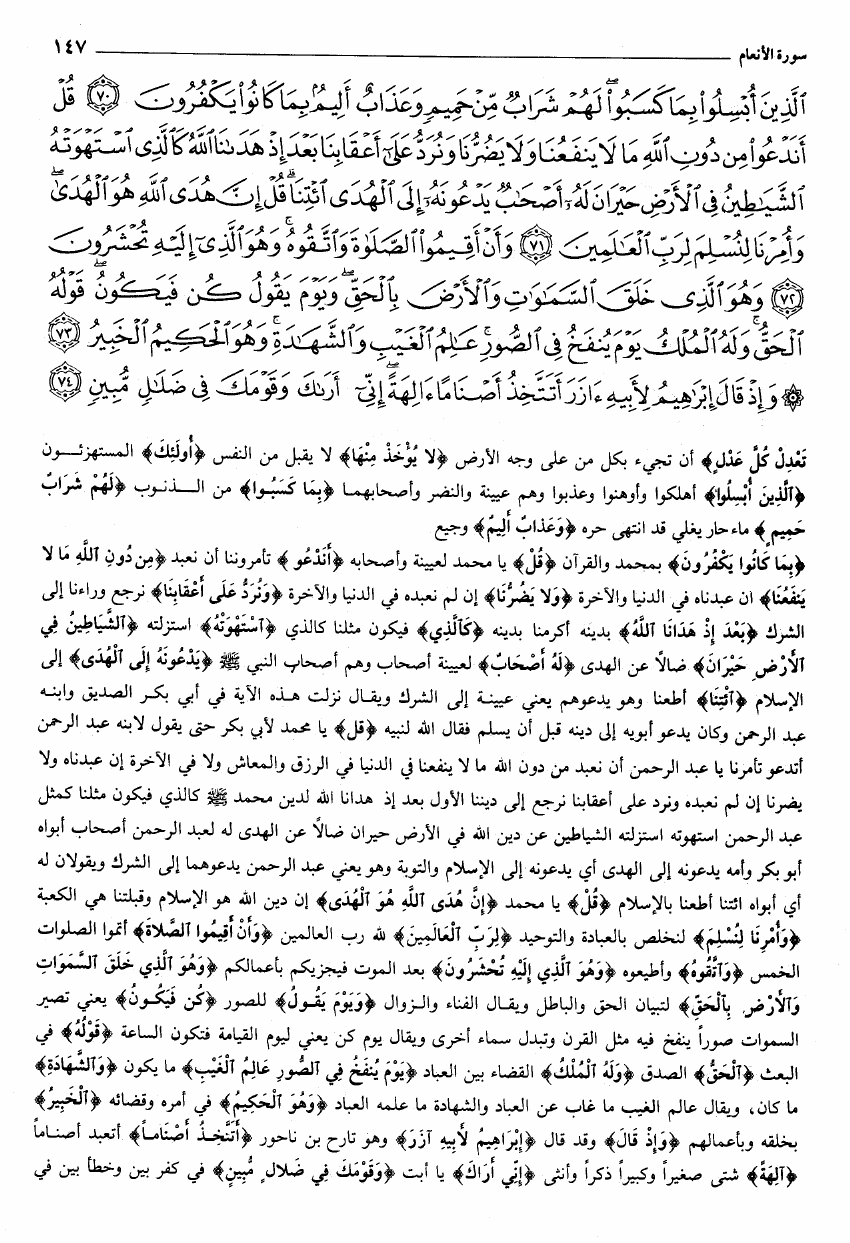 سورة الأنعام ١٤٧
ٱلَّذِينَ أُبْسِلُوا۟ بِمَا كَسَبُوا۟ ۖ لَهُمْ شَرَابٌ مِّنْ حَمِيمٍ وَعَذَابٌ أَلِيمٌۢ بِمَا كَانُوا۟ يَكْفُرُونَ ٧٠ قُلْ
أَنَدْعُوا۟ مِن دُونِ ٱللَّهِ مَا لَا يَنفَعُنَا وَلَا يَضُرُّنَا وَنُرَدُّ عَلَىٰٓ أَعْقَابِنَا بَعْدَ إِذْ هَدَىٰنَا ٱللَّهُ كَٱلَّذِى ٱسْتَهْوَتْهُ
ٱلشَّيَٰطِينُ فِى ٱلْأَرْضِ حَيْرَانَ لَهُۥٓ أَصْحَٰبٌ يَدْعُونَهُۥٓ إِلَى ٱلْهُدَى ٱئْتِنَا ۗ قُلْ إِنَّ هُدَى ٱللَّهِ هُوَ ٱلْهُدَىٰ ۖ
وَأُمِرْنَا لِنُسْلِمَ لِرَبِّ ٱلْعَٰلَمِينَ ٧١ وَأَنْ أَقِيمُوا۟ ٱلصَّلَوٰةَ وَٱتَّقُوهُ ۚ وَهُوَ ٱلَّذِىٓ إِلَيْهِ تُحْشَرُونَ
٧٢ وَهُوَ ٱلَّذِى خَلَقَ ٱلسَّمَٰوَٰتِ وَٱلْأَرْضَ بِٱلْحَقِّ ۖ وَيَوْمَ يَقُولُ كُن فَيَكُونُ ۚ قَوْلُهُ
ٱلْحَقُّ ۚ وَلَهُ ٱلْمُلْكُ يَوْمَ يُنفَخُ فِى ٱلصُّورِ ۚ عَٰلِمُ ٱلْغَيْبِ وَٱلشَّهَٰدَةِ ۚ وَهُوَ ٱلْحَكِيمُ ٱلْخَبِيرُ ٧٣
۞ وَإِذْ قَالَ إِبْرَٰهِيمُ لِأَبِيهِ ءَازَرَ أَتَتَّخِذُ أَصْنَامًا ءَالِهَةً ۖ إِنِّىٓ أَرَىٰكَ وَقَوْمَكَ فِى ضَلَٰلٍ مُّبِينٍ ٧٤
تَعْدِلْ كُلَّ عَدْلٍ﴾ أن تجيء بكل من على وجه الأرض ﴿لا يُؤْخَذْ مِنْهَا﴾ لا يقبل من النفس ﴿أُولَئِكَ﴾ المستهزئون
﴿ٱلَّذِينَ أُبْسِلُوا﴾ أهلكوا وأوهنوا وعذبوا وهم عيينة والنضر وأصحابهما ﴿بِمَا كَسَبُوا﴾ من الذنوب ﴿لَهُمْ شَرَابٌ
حَمِيمٍ﴾ ماء حار يغلي قد انتهى حره ﴿وَعَذَابٌ أَلِيمٌ﴾ وجيع
﴿بِمَا كَانُوا يَكْفُرُونَ﴾ بمحمد والقرآن ﴿قُلْ﴾ يا محمد لعيينة وأصحابه ﴿أَنَدْعُو﴾ تأمروننا أن نعبد ﴿مِن دُونِ ٱللَّهِ مَا لا
يَنفَعُنَا﴾ ان عبدناه في الدنيا والآخرة ﴿وَلا يَضُرُّنَا﴾ إن لم نعبده في الدنيا والآخرة ﴿وَنُرَدُّ عَلَى أَعْقَابِنَا﴾ نرجع وراءنا إلى
الشرك ﴿بَعْدَ إِذْ هَدَانَا ٱللَّهُ﴾ بدينه أكرمنا بدينه ﴿كَٱلَّذِي﴾ فيكون مثلنا كالذي ﴿ٱسْتَهْوَتْهُ﴾ استزلته ﴿ٱلشَّيَاطِينُ فِي
ٱلْأَرْضِ حَيْرَانَ﴾ ضالاً عن الهدى ﴿لَهُ أَصْحَابٌ﴾ لعيينة أصحاب وهم أصحاب النبي ﷺ ﴿يَدْعُونَهُ إِلَى ٱلْهُدَى﴾ إلى
الإسلام ﴿ٱئْتِنَا﴾ أطعنا وهو يدعوهم يعني عيينة إلى الشرك ويقال نزلت هذه الآية في أبي بكر الصديق وابنه
عبد الرحمن وكان يدعو أبويه إلى دينه قبل أن يسلم فقال الله لنبيه ﴿قل﴾ يا محمد لأبي بكر حتى يقول لابنه عبد الرحمن
أتدعو تأمرنا يا عبد الرحمن أن نعبد من دون الله ما لا ينفعنا في الدنيا في الرزق والمعاش ولا في الآخرة إن عبدناه ولا
يضرنا إن لم نعبده ونرد على أعقابنا نرجع إلى ديننا الأول بعد إذ هدانا الله لدين محمد ﷺ كالذي فيكون مثلنا كمثل
عبد الرحمن استهوته استزلته الشياطين عن دين الله في الأرض حيران ضالاً عن الهدى له لعبد الرحمن أصحاب أبواه
أبو بكر وأمه يدعونه إلى الهدى أي يدعونه إلى الإسلام والتوبة وهو يعني عبد الرحمن يدعوهما إلى الشرك ويقولان له
أي أبواه ائتنا أطعنا بالإسلام ﴿قُلْ﴾ يا محمد ﴿إِنَّ هُدَى ٱللَّهِ هُوَ ٱلْهُدَى﴾ إن دين الله هو الإسلام وقبلتنا هي الكعبة
﴿وَأُمِرْنَا لِنُسْلِمَ﴾ لنخلص بالعبادة والتوحيد ﴿لِرَبِّ ٱلْعَالَمِينَ﴾ لله رب العالمين ﴿وَأَنْ أَقِيمُوا ٱلصَّلاةَ﴾ أتموا الصلوات
الخمس ﴿وَٱتَّقُوهُ﴾ وأطيعوه ﴿وَهُوَ ٱلَّذِي إِلَيْهِ تُحْشَرُونَ﴾ بعد الموت فيجزيكم بأعمالكم ﴿وَهُوَ ٱلَّذِي خَلَقَ ٱلسَّمَوَاتِ
وَٱلْأَرْضَ بِٱلْحَقِّ﴾ لتبيان الحق والباطل ويقال الفناء والزوال ﴿وَيَوْمَ يَقُولُ﴾ للصور ﴿كُن فَيَكُونُ﴾ يعني تصير
السموات صوراً ينفخ فيه مثل القرن وتبدل سماء أخرى ويقال يوم كن يعني ليوم القيامة فتكون الساعة ﴿قَوْلُهُ﴾ في
البعث ﴿ٱلْحَقُّ﴾ الصدق ﴿وَلَهُ ٱلْمُلْكُ﴾ القضاء بين العباد ﴿يَوْمَ يُنفَخُ فِي ٱلصُّورِ عَالِمُ ٱلْغَيْبِ﴾ ما يكون ﴿وَٱلشَّهَادَةِ﴾
ما كان، ويقال عالم الغيب ما غاب عن العباد والشهادة ما علمه العباد ﴿وَهُوَ ٱلْحَكِيمُ﴾ في أمره وقضائه ﴿ٱلْخَبِيرُ﴾
بخلقه وبأعمالهم ﴿وَإِذْ قَالَ﴾ وقد قال ﴿إِبْرَاهِيمُ لأَبِيهِ آزَرَ﴾ وهو تارح بن ناحور ﴿أَتَتَّخِذُ أَصْنَاماً﴾ أتعبد أصناماً
﴿آلِهَةً﴾ شتى صغيراً وكبيراً ذكراً وأنثى ﴿إِنِّي أَرَاكَ﴾ يا أبت ﴿وَقَوْمَكَ فِي ضَلالٍ مُّبِينٍ﴾ في كفر بين وخطأ بين في